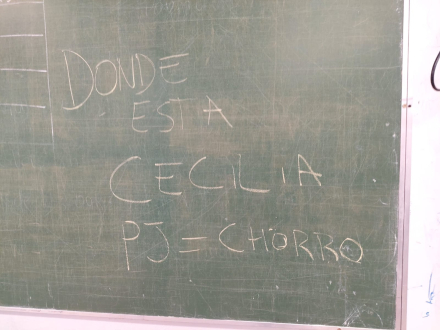 DONDE
ESTA
CECILIA
PJ = CHORRO